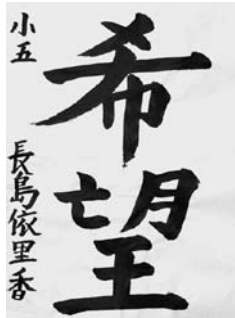 希望
小五
長島依里香